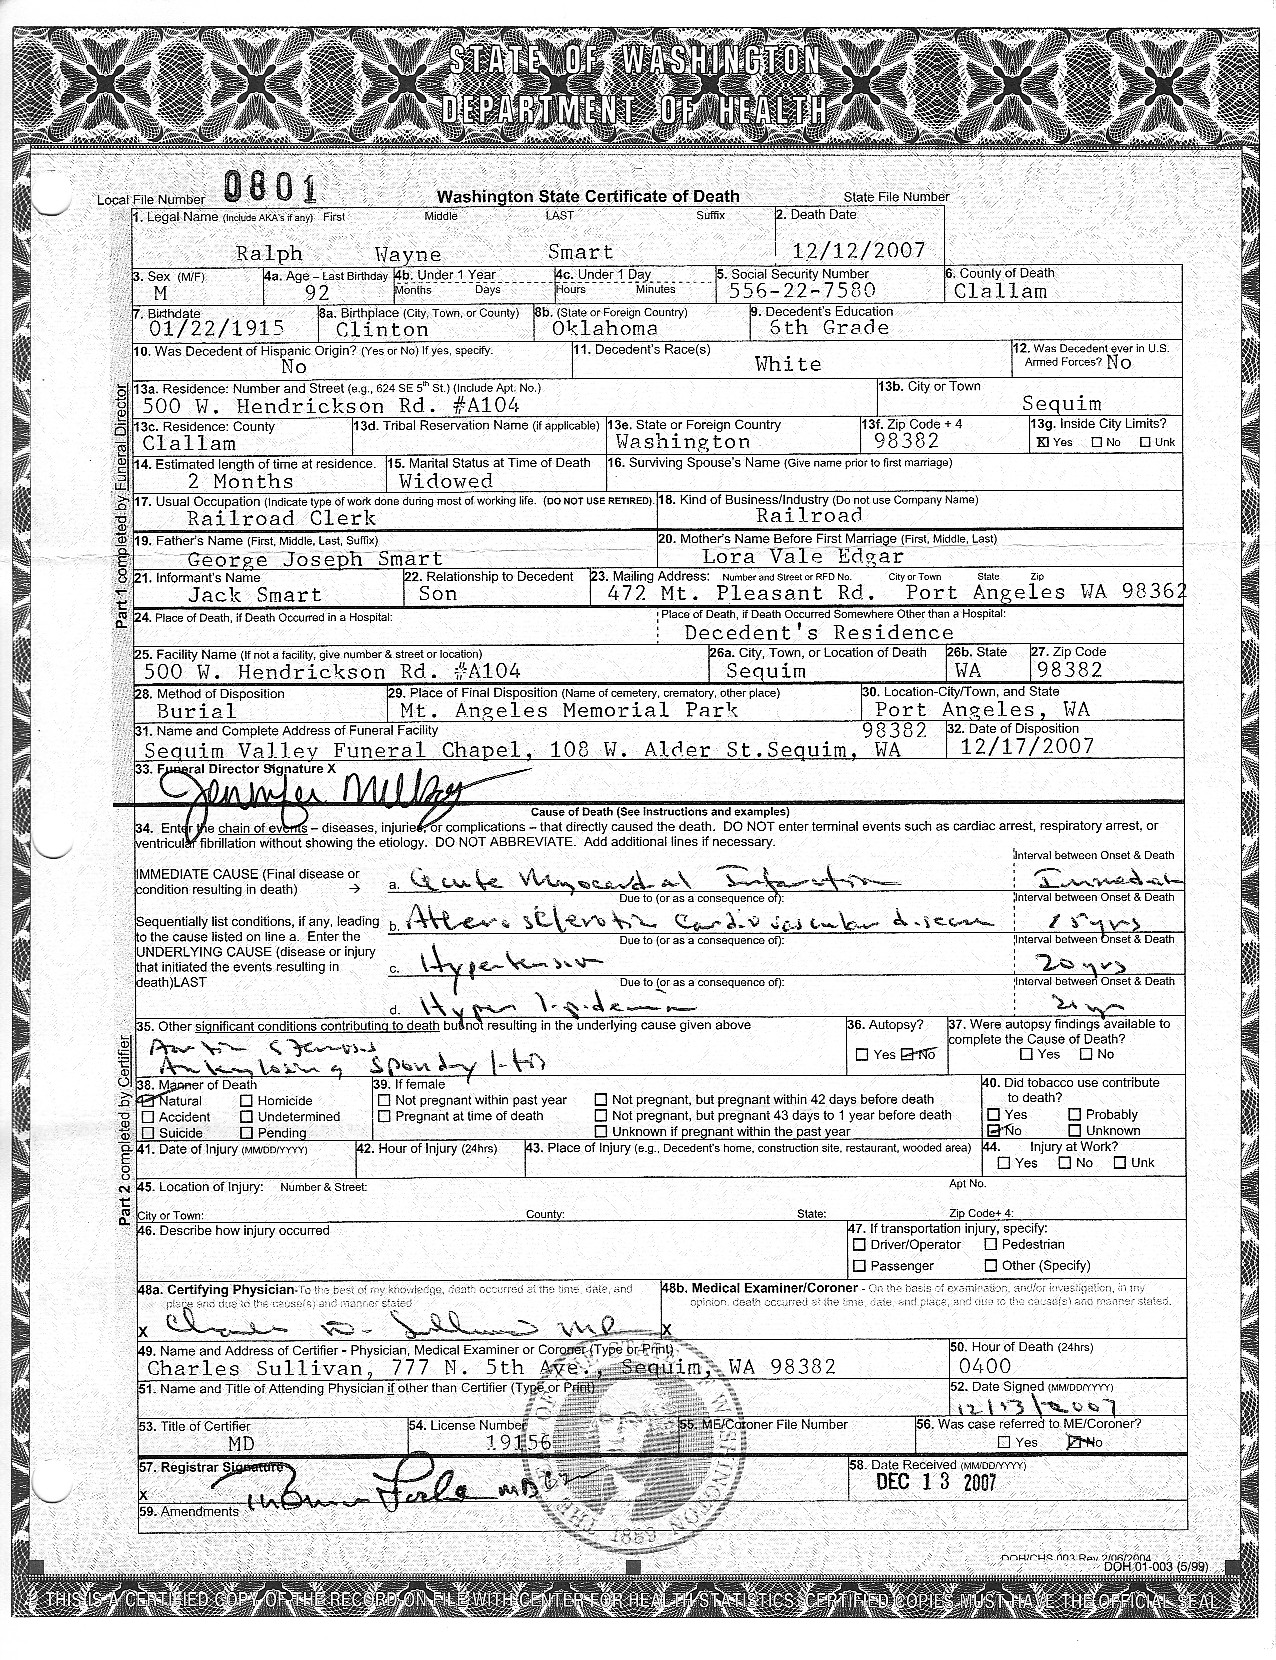 STATE OF WASHINGTON
DEPARTMENT OF HEALTH
Local File Number 0801 Washington State Certificate of Death State File Number
1. Legal Name (Include AKA's if any) First Middle LAST Suffix 2. Death Date
Ralph Wayne Smart 12/12/2007
3. Sex (M/F) 4a. Age – Last Birthday 4b. Under 1 Year 4c. Under 1 Day 5. Social Security Number 6. County of Death
M 92 Months Days Hours Minutes 556-22-7580 Clallam
7. Birthdate 8a. Birthplace (City, Town, or County) 8b. (State or Foreign Country) 9. Decedent's Education
01/22/1915 Clinton Oklahoma 6th Grade
10. Was Decedent of Hispanic Origin? (Yes or No) If yes, specify. 11. Decedent's Race(s) 12. Was Decedent ever in U.S.
No White Armed Forces? No
13a. Residence: Number and Street (e.g., 624 SE 5th St.) (Include Apt. No.) 13b. City or Town
500 W. Hendrickson Rd. #A104 Sequim
13c. Residence: County 13d. Tribal Reservation Name (if applicable) 13e. State or Foreign Country 13f. Zip Code + 4 13g. Inside City Limits?
Clallam Washington 98382 Yes No Unk
14. Estimated length of time at residence. 15. Marital Status at Time of Death 16. Surviving Spouse's Name (Give name prior to first marriage)
2 Months Widowed
17. Usual Occupation (Indicate type of work done during most of working life. (DO NOT USE RETIRED). 18. Kind of Business/Industry (Do not use Company Name)
Railroad Clerk Railroad
19. Father's Name (First, Middle, Last, Suffix) 20. Mother's Name Before First Marriage (First, Middle, Last)
George Joseph Smart Lora Vale Edgar
21. Informant's Name 22. Relationship to Decedent 23. Mailing Address: Number and Street or RFD No. City or Town State Zip
Jack Smart Son 472 Mt. Pleasant Rd. Port Angeles WA 98362
24. Place of Death, if Death Occurred in a Hospital: Place of Death, if Death Occurred Somewhere Other than a Hospital:
Decedent's Residence
25. Facility Name (If not a facility, give number & street or location) 26a. City, Town, or Location of Death 26b. State 27. Zip Code
500 W. Hendrickson Rd. #A104 Sequim WA 98382
28. Method of Disposition 29. Place of Final Disposition (Name of cemetery, crematory, other place) 30. Location-City/Town, and State
Burial Mt. Angeles Memorial Park Port Angeles, WA
31. Name and Complete Address of Funeral Facility 98382 32. Date of Disposition
Sequim Valley Funeral Chapel, 108 W. Alder St.Sequim, WA 12/17/2007
33. Funeral Director Signature X
Jennifer
Part 1 completed by Funeral Director
Cause of Death (See Instructions and examples)
34. Enter the chain of events – diseases, injuries, or complications – that directly caused the death. DO NOT enter terminal events such as cardiac arrest, respiratory arrest, or
ventricular fibrillation without showing the etiology. DO NOT ABBREVIATE. Add additional lines if necessary.
Interval between Onset & Death
IMMEDIATE CAUSE (Final disease or
condition resulting in death) → a. Acute Myocardial Infarction Immediate
Due to (or as a consequence of): Interval between Onset & Death
Sequentially list conditions, if any, leading b. Atherosclerotic Cardiovascular disease 15 yrs
to the cause listed on line a. Enter the Due to (or as a consequence of): Interval between Onset & Death
UNDERLYING CAUSE (disease or injury
that initiated the events resulting in c. Hypertension 20 yrs
death)LAST Due to (or as a consequence of): Interval between Onset & Death
d. Hyperlipidemia
35. Other significant conditions contributing to death but not resulting in the underlying cause given above 36. Autopsy? 37. Were autopsy findings available to
complete the Cause of Death?
Aortic Stenosis Yes No Yes No
Ankylosing Spondylitis
38. Manner of Death 39. If female 40. Did tobacco use contribute
to death?
Natural Homicide Not pregnant within past year Not pregnant, but pregnant within 42 days before death
Accident Undetermined Pregnant at time of death Not pregnant, but pregnant 43 days to 1 year before death Yes Probably
Suicide Pending Unknown if pregnant within the past year No Unknown
41. Date of Injury (MM/DD/YYYY) 42. Hour of Injury (24hrs) 43. Place of Injury (e.g., Decedent's home, construction site, restaurant, wooded area) 44. Injury at Work?
Yes No Unk
45. Location of Injury: Number & Street: Apt No.
City or Town: County: State: Zip Code+ 4:
46. Describe how injury occurred 47. If transportation injury, specify:
Driver/Operator Pedestrian
Passenger Other (Specify)
48a. Certifying Physician-To the best of my knowledge, death occurred at the time, date, and
place and due to the cause(s) and manner stated
48b. Medical Examiner/Coroner - On the basis of examination, and/or investigation, in my
opinion, death occurred at the time, date, and place, and due to the cause(s) and manner stated.
X Charles D. Sullivan MD X
49. Name and Address of Certifier - Physician, Medical Examiner or Coroner (Type or Print) 50. Hour of Death (24hrs)
Charles Sullivan, 777 N. 5th Ave., Sequim, WA 98382 0400
51. Name and Title of Attending Physician if other than Certifier (Type or Print) 52. Date Signed (MM/DD/YYYY)
12/13/2007
53. Title of Certifier 54. License Number 55. ME/Coroner File Number 56. Was case referred to ME/Coroner?
MD 19156 Yes No
57. Registrar Signature 58. Date Received (MM/DD/YYYY)
X DEC 13 2007
59. Amendments
Part 2 completed by Certifier
1889
DOH/CHS 003 Rev 2/06/2004
DOH 01-003 (5/99)
THIS IS A CERTIFIED COPY OF THE RECORD ON FILE WITH CENTER FOR HEALTH STATISTICS. CERTIFIED COPIES MUST HAVE THE OFFICIAL SEAL